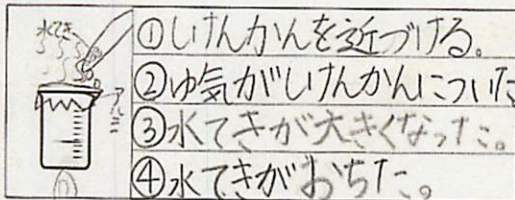 水てき
アルミ
①しけんかんを近づける。
②ゆ気がしけんかんについた
③水てきが大きくなった。
④水てきがおちた。